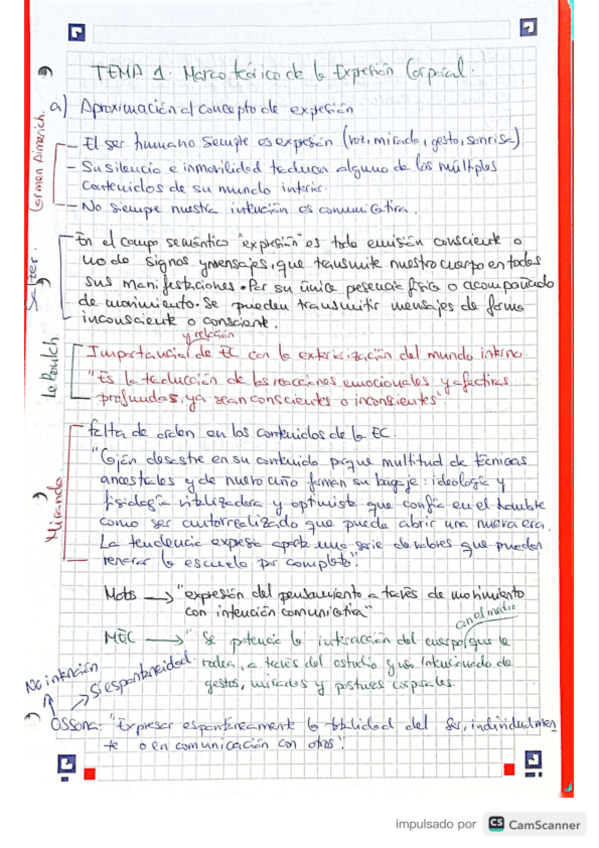 TEMA 1: Marco teórico de la Expresión Corporal.
a) Aproximación al concepto de expresión
Carmen Aimerich.
- El ser humano siempre es expresión (voz, mirada, gesto, sonrisa)
- Su silencio e inmovilidad traducen alguno de los múltiples
contenidos de su mundo interior.
- No siempre nuestra intención es comunicativa.
En el campo semántico "expresión" es toda emisión consciente o
no de signos y mensajes, que transmite nuestro cuerpo en todas
sus manifestaciones. Por su única presencia física o acompañado
de movimiento. Se pueden transmitir mensajes de forma
inconsciente o consciente.
Le Boulch
y relación
Importancia de EC con la exteriorización del mundo interno.
"Es la traducción de las reacciones emocionales y afectivas
profundas, ya sean conscientes o inconscientes"
Miranda
falta de orden en los contenidos de la EC.
"Cajón desastre en su contenido porque multitud de técnicas
ancestrales y de nuevo cuño forman su bagaje: ideología y
fisiología vitalizadora y optimista que confía en el hombre
como ser autorrealizado que puede abrir una nueva era.
La tendencia expresiva aporta una serie de valores que pueden
renovar la escuela por completo".
Mots → "expresión del pensamiento a través de movimiento
con intención comunicativa"
con el medio
MEC → "Se potencia la interacción del cuerpo que le
rodea, a través del estudio y uso intencionado de
gestos, miradas y posturas corporales.
No intención
Sí espontaneidad.
Ossona: "Expresar espontáneamente la totalidad del ser, individualmen
te o en comunicación con otros".
impulsado por CS CamScanner